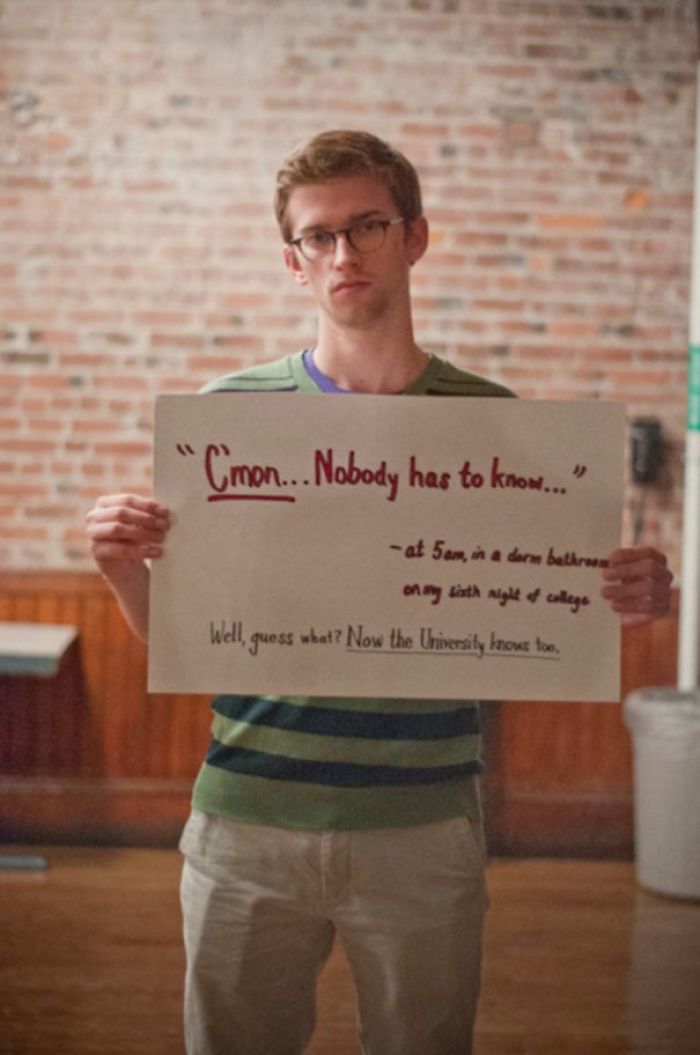 "C'mon... Nobody has to know..."
- at 5am, in a dorm bathroom
on my sixth night of college
Well, guess what? Now the University knows too.